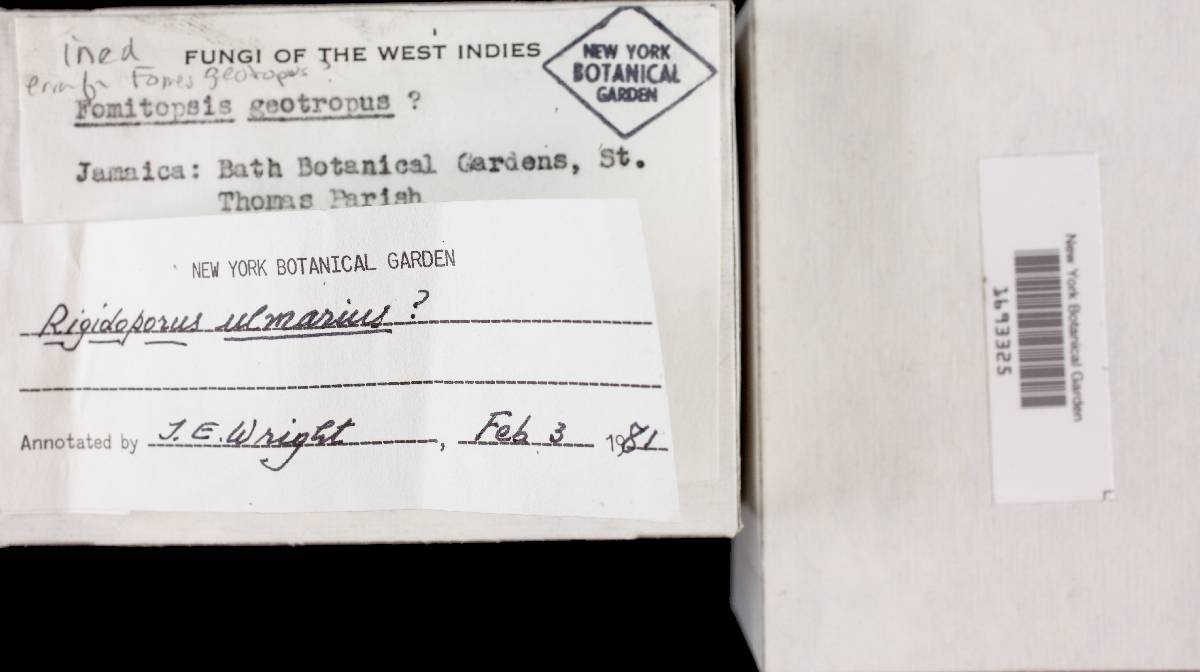 ined
FUNGI OF THE WEST INDIES
Fomes geotropus ?
Fomitopsis geotropus ?
NEW YORK
BOTANICAL
GARDEN
Jamaica: Bath Botanical Gardens, St.
Thomas Parish
NEW YORK BOTANICAL GARDEN
Rigidoporus ulmarius ?
Annotated by J. E. Wright, Feb 3 1981
New York Botanical Garden